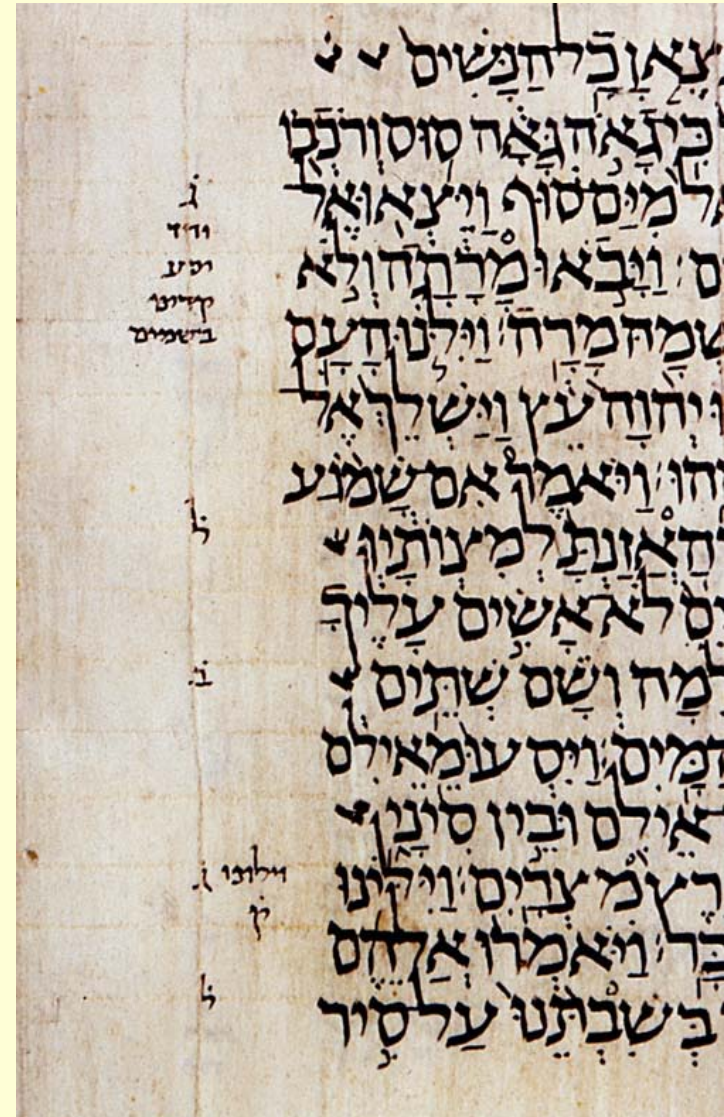 צֶאןָ כָל הַנָּשִׁים
כִּי גָאֹה גָּאָה סוּס וְרֹכְבוֹ
אֵל מִיַּם סוּף וַיֵּצְאוּ אֶל
ם׃ וַיָּבֹאוּ מָרָתָה וְלֹא
שְׁמָהּ מָרָה׃ וַיִּלֹּנוּ הָעָם
יְהוָה עֵץ וַיַּשְׁלֵךְ אֶל
הוּ׃ וַיֹּאמֶר אִם שָׁמוֹעַ
הַאֲזַנְתָּ לְמִצְוֹתָיו
ם לֹא אָשִׂים עָלֶיךָ
מָה וְשָׁם שְׁתֵּים
הַמָּיִם׃ וַיִּסְעוּ מֵאֵילִם
אֵילִם וּבֵין סִינַי
רֶץ מִצְרָיִם׃ וַיִּלִּינוּ
בָּר׃ וַיֹּאמְרוּ אֲלֵהֶם
בְּשִׁבְתֵּנוּ עַל סִיר
ג̇
בשמים
ל̇
ב̇
וילונו ג̇
ק̇
ל̇